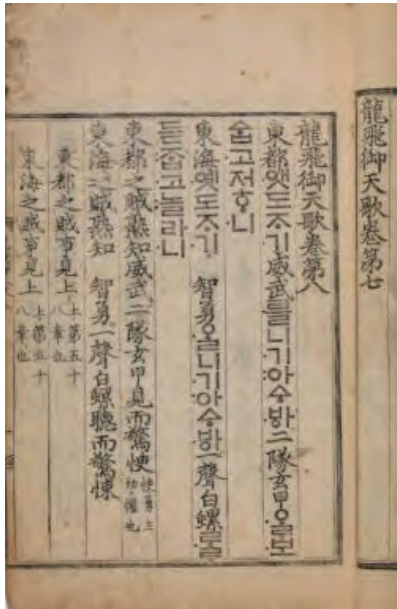 龍飛御天歌卷第七
龍飛御天歌卷第八
東都앳도ᄌᆞ기威武를니기아ᅀᆞᄫᅡ二隊玄甲ᄋᆞᆯ보
ᅀᆞᆸ고저ᄒᆞ니
東海옛도ᄌᆞ기 智勇ᄋᆞᆯ니기아ᅀᆞᄫᅡ一聲白螺ᄅᆞᆯ
듣ᄌᆞᆸ고놀라니
東都之賊熟知威武二隊玄甲見而驚怯 懼也
東海之賊熟知 智勇一聲白螺聽而驚悚
東都之賊事見上 上第五十八章也
東海之賊事見上 上第五十八章也